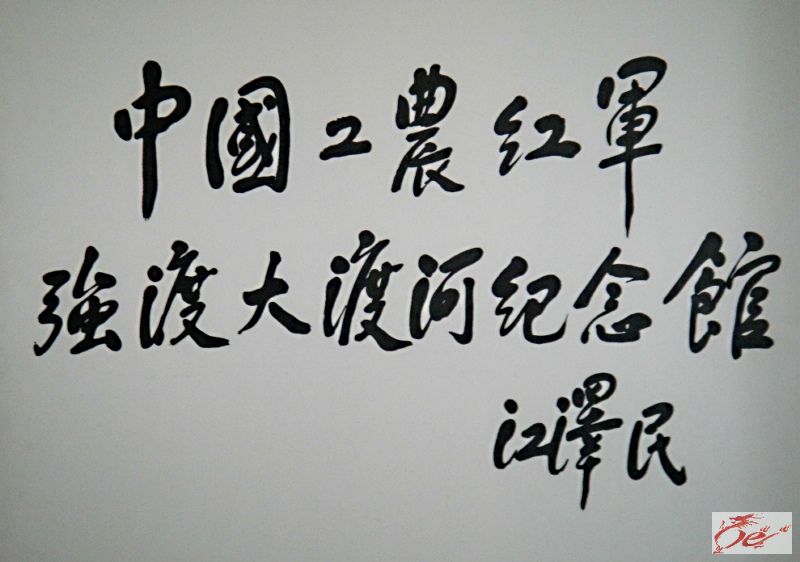 中國工農红軍
強渡大渡河纪念館
江澤民